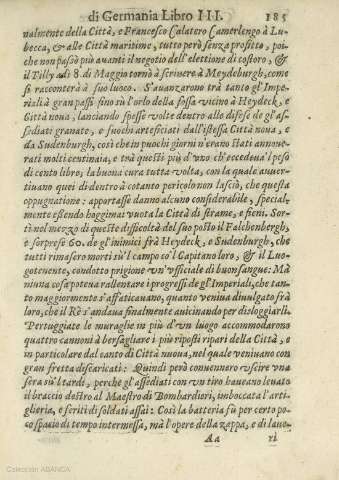 di Germania Libro III. 185
nalmente della Città, e Francesco Calatero Camerlengo à Lu-
becca, & alle Città maritime, tutto però senza profitto, poi-
che non passò più auanti il negotio dell'elettione di costoro, &
il Tilly adi 8 di Maggio tornò à scriuere à Meydeburgh, come
si raccontera à suo luogo. S'auanzarono trà tanto gl'Impe-
riali à gran passi sino sù l'orlo della fossa vicino à Heydeck, e
Città noua, lanciando spesse volte dentro alle difese de gl'as-
sediati granate, e fuochi arteficiati dall'istessa Città noua, e
da Sudenburgh, così che in puochi giorni n'erano stati annoue-
rati molti centinaia, e trà questi più d'vno ch'eccedeua l peso
di cento libre, la buona cura tutta volta, con la quale auuer-
tiuano quei di dentro à cotanto pericolo non lasciò, che questa
oppugnatione apportasse danno alcuno considerabile, special-
mente essendo hoggimai vuota la Città di strame, e fieni. Sor-
tì nel mezzo di queste difficoltà del suo posto il Falchenbergh,
e sorprese 60. de gl'inimici frà Heydeck, e Sudenburgh, che
tutti rimasero morti sù'l campo co'l Capitano loro, & il Luo-
gotenente, condotto prigione vn'vfficiale di buon sangue: Mà
niuna cosa poteua rallentare i progressi de gl'Imperiali, che tan-
to maggiormente s'affaticauano, quanto veniua diuulgato frà
loro, che il Rè s'andaua finalmente auicinando per disloggiarli.
Pertuggiate le muraglie in più d'vn luogo accommodarono
quattro cannoni à bersagliare i più riposti ripari della Città, e
in particolare dal canto di Città nuoua, nel quale veniuano con
gran fretta discaricati: Quindi però conuennero vscire vna
sera sù'l tardi, perche gl'assediati con vn tiro haueano leuato
il braccio destro al Maestro di Bombardieri, imboccata l'arti-
glieria, e feriti di soldati assai: Così la batteria fù per certo po-
co spacio di tempo intermessa, mà l'opere della zappa, e di lauo-
Aa ri
Colección ABANCA